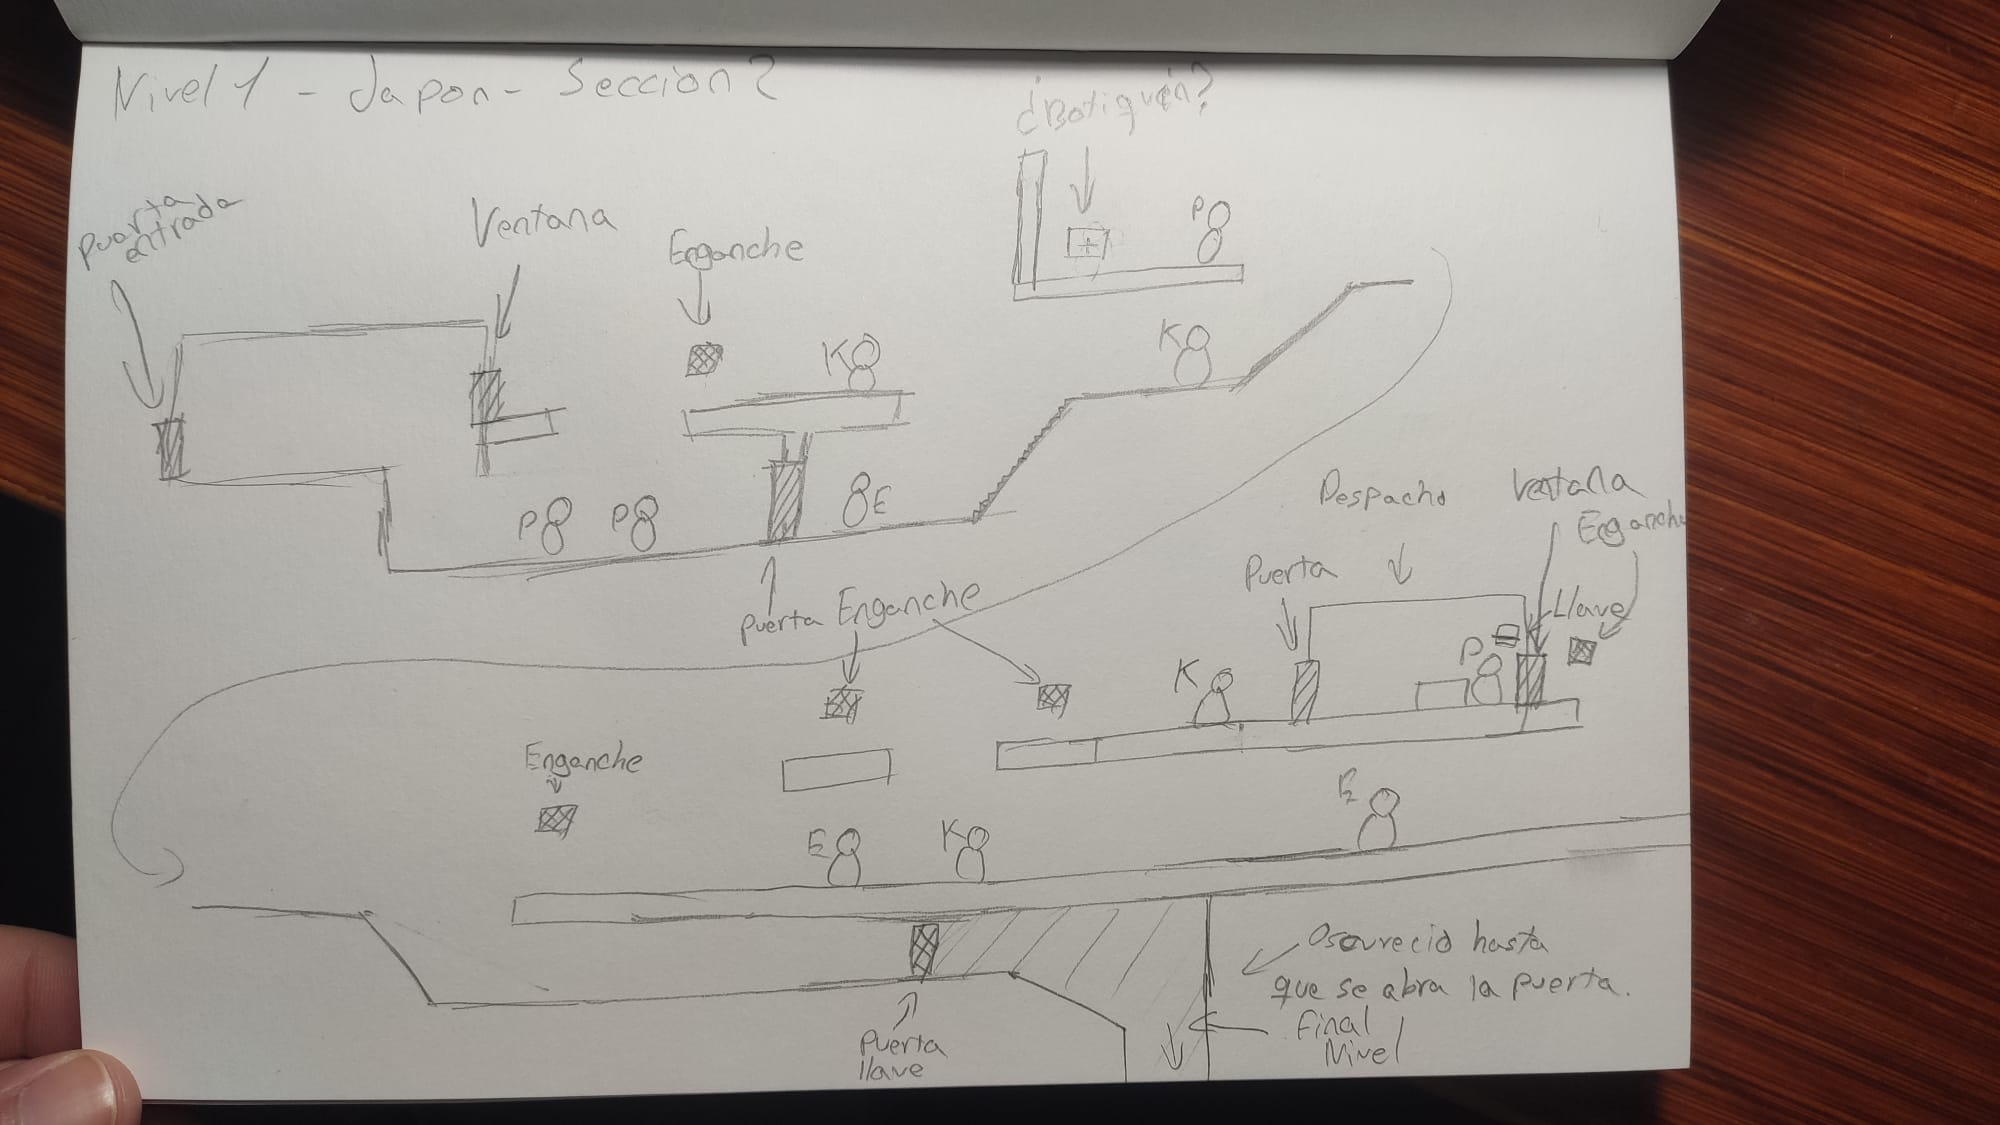 Nivel 1 - Japon - Seccion 2
¿Botiquín?
Puerta
entrada
Ventana
Enganche
P
K
K
P
P
E
Puerta
Enganche
Despacho
Ventana
Enganche
Puerta
Llave
K
P
Enganche
E
K
E
Puerta
llave
Oscurecio hasta
que se abra la puerta.
Final
Nivel